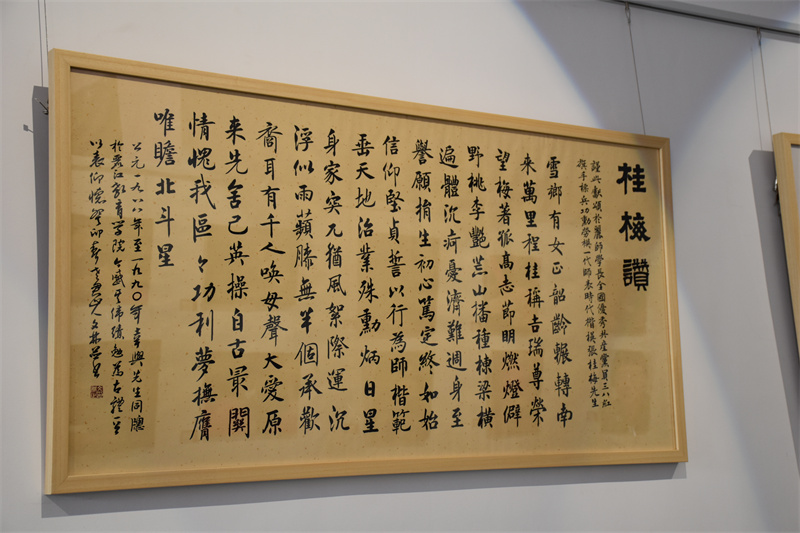 桂梅讚
謹此獻頌於麗師學長全國優秀共産黨員三八紅
旗手標兵功勳勞模一代師表時代楷模張桂梅先生
雪鄉有女正韶齡輾轉南
來萬里程桂稱吉瑞尊榮
望梅著孤高志節明燃燈僻
野桃李艷荒山播種棟梁橫
遍體沉疴憂濟難週身至
譽願捐生初心篤定終如始
信仰堅貞誓以行為師楷範
垂天地治業殊勳炳日星
身家突兀猶風絮際運沉
浮似雨蘋膝無半個承歡
裔耳有千人喚母聲大愛原
来先舍己英操自古最關
情愧我區々功利夢撫膺
唯瞻北斗星
公元一九八八年至一九九〇年幸與先生同窗
於麗江教育學院今感其偉績勉為古禮一首
以表仰懷